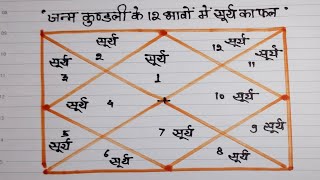 "जन्म कुण्डली के 12 भावों में सूर्य का फल"
सूर्य 2
सूर्य 12
सूर्य 3
सूर्य 1
सूर्य 11
सूर्य 4
10 सूर्य
5 सूर्य
7 सूर्य
9 सूर्य
6 सूर्य
8 सूर्य